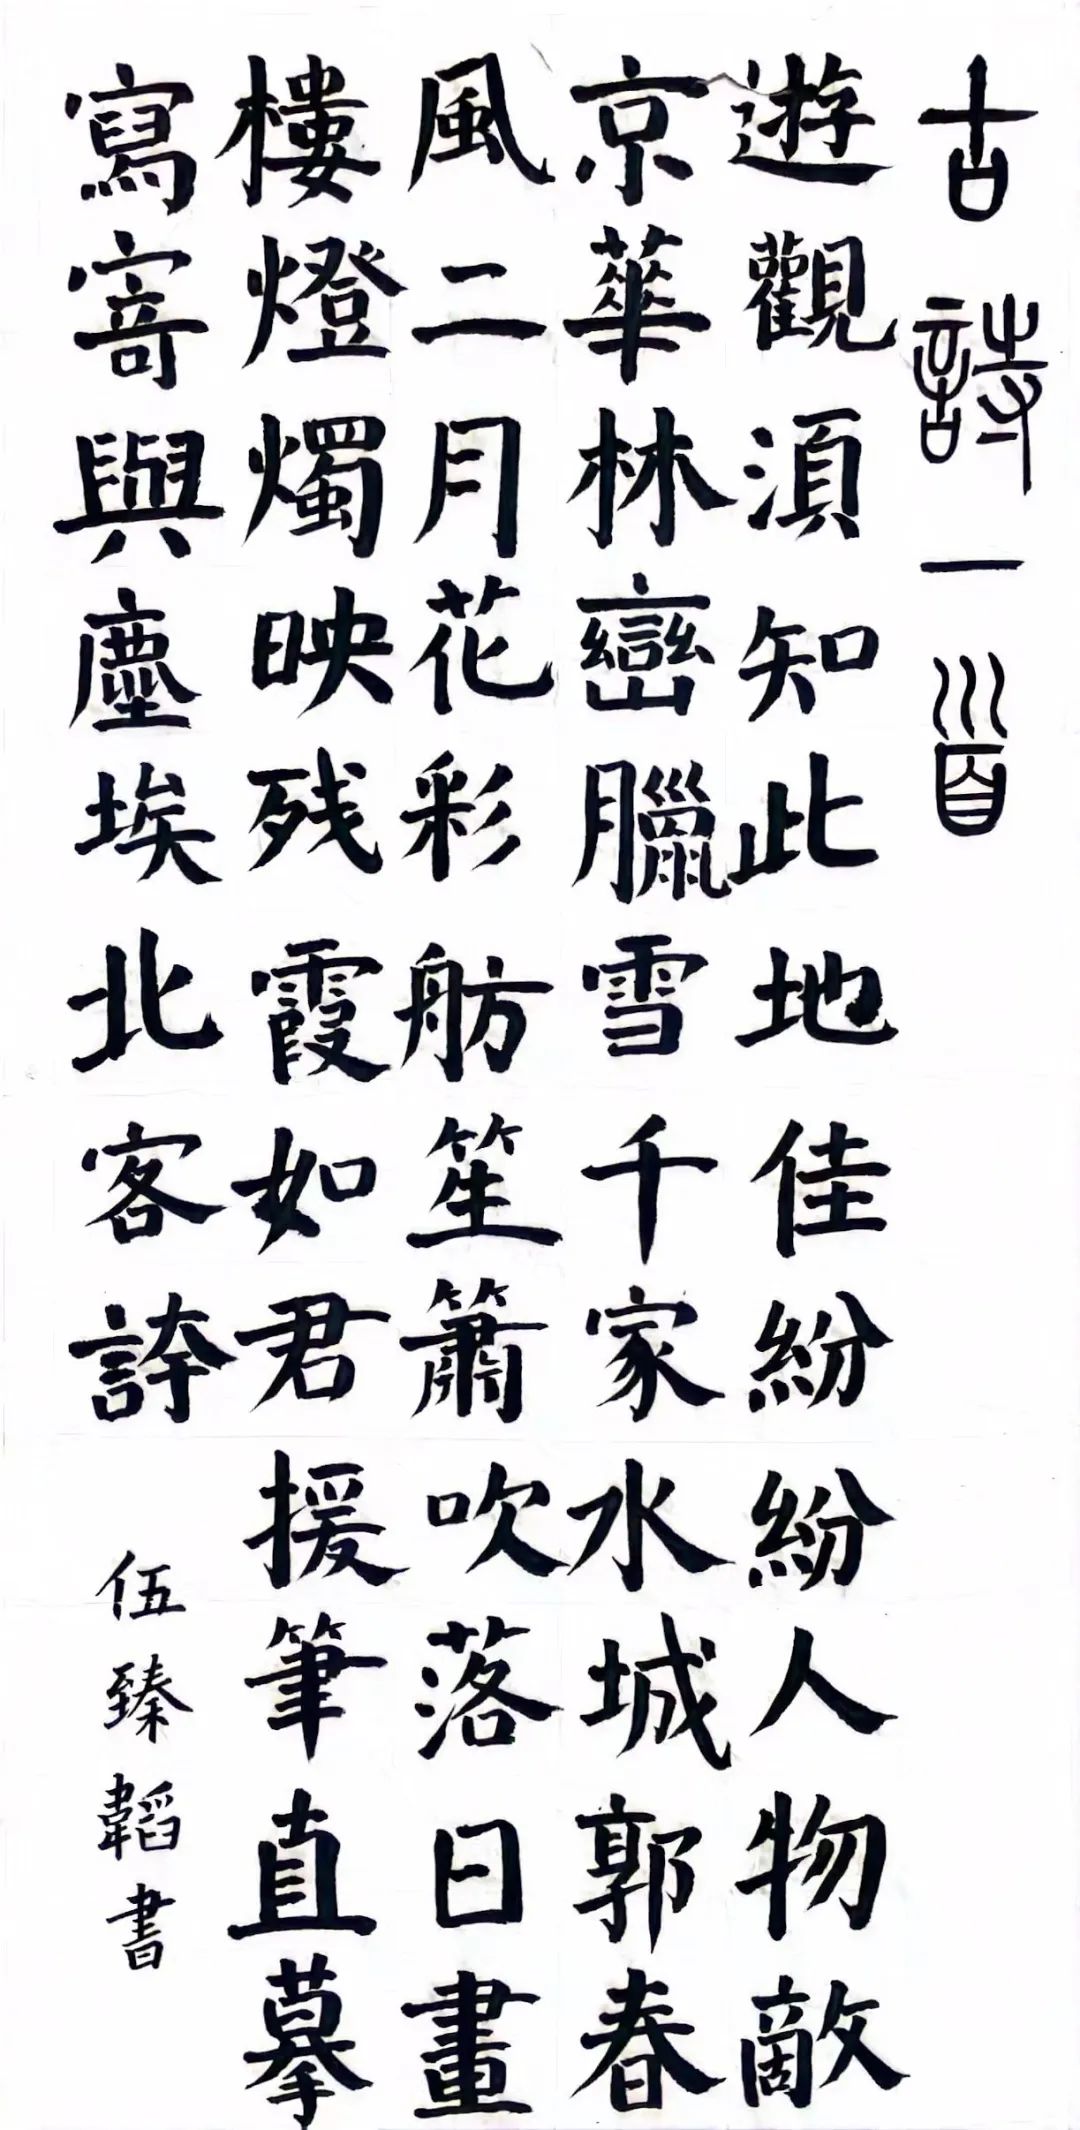 古詩一首
遊觀須知此地佳紛紛人物敵
京華林巒臘雪千家水城郭春
風二月花彩舫笙簫吹落日畫
樓燈燭映残霞如君援筆直摹
寫寄與塵埃北客誇
伍臻韜書